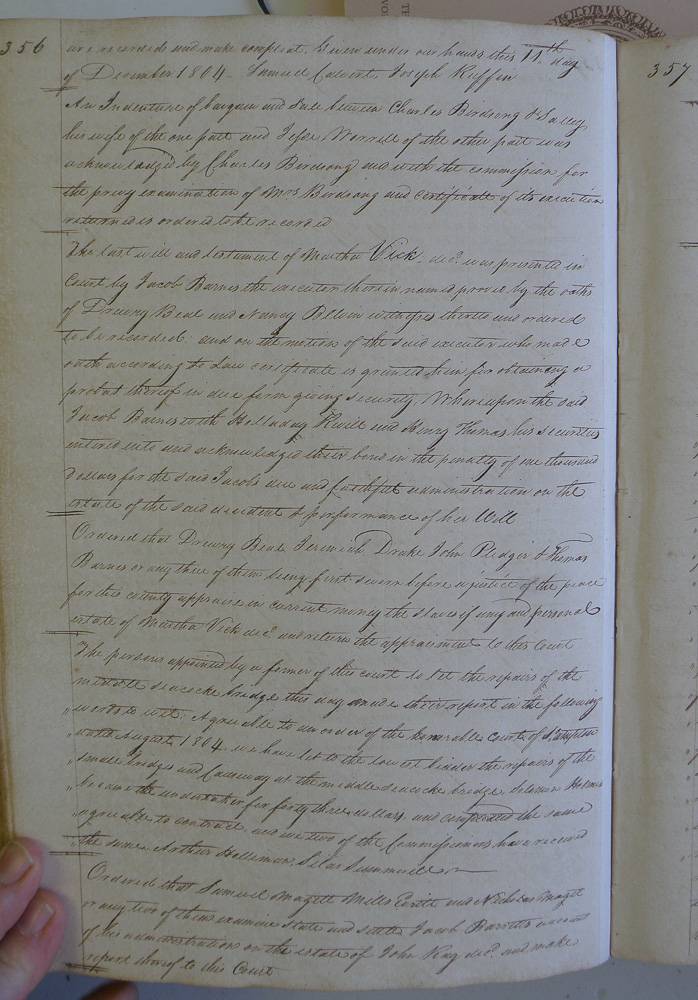 356
are recorded and make compleat. Given under our hands this 11th day
of December 1804. Samuel Calvert, Joseph Ruffin
An Indenture of bargain and sale between Charles Birdsong & Salley
his wife of the one part and Jesse Worrell of the other part was
acknowledged by Charles Birdsong and with the commission for
the privy examination of Mrs Birdsong and certificate of its execution
returned is ordered to be recorded
The last will and testament of Martha Vick decd. was presented in
Court by Jacob Barnes the executor therein named proved by the oaths
of Drewry Beal and Nancy witnesses thereto and ordered
to be recorded and on the motion of the said executor who made
oath according to law certificate is granted him for obtaining a
probat thereof in due form giving security. Whereupon the said
Jacob Barnes with Holladay and Henry Thomas his securities
entered into and acknowledged their bond in the penalty of one thousand
Dollars for the said Jacobs due and faithful administration on the
estate of the said decedent & performance of her Will
Ordered that Drewry Beal Jeremiah Drake John Pledger & Thomas
Barnes or any three of them being first sworn before a justice of the peace
for this county appraise in current money the slaves if any and personal
estate of Martha Vick decd and return the appraisment to this Court
The persons appointed by a former of this court to let the repairs of the
middle seacocke bridge this day made their report in the following
words to wit: Agreeable to an order of the honorable Court of Southampton
dated August 1804 we have let to the lowest bidder the repairs of the
small bridges and Causeway at the middle seacocke bridge, Solomon Holmes
became the undertaker for forty three dollars, and compleated the same
agreeable to contract, and we two of the Commissioners have received
the same. Arthur Holleman, Silas Summerell
Ordered that Samuel Magett Mills and Nicholas Magett
or any two of them examine state and settle Jacob Barretts account
of his administration on the estate of John Kay decd. and make
report thereof to this Court
357